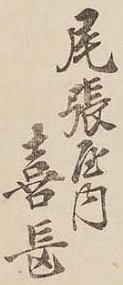 尾張屋内
喜長